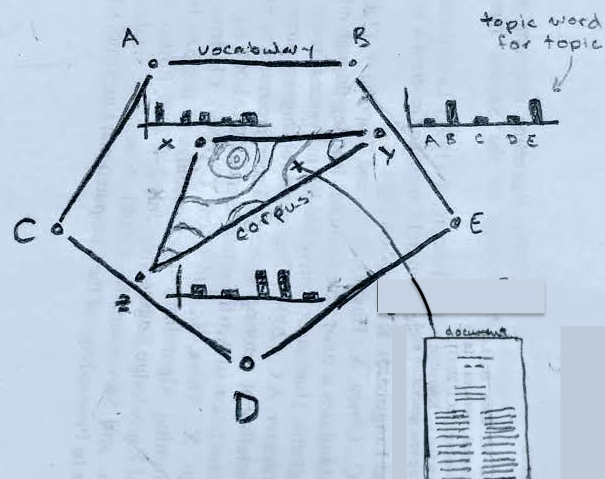 topic word
for topic
A
vocabulary
B
A B C D E
X
y
C
corpus
E
z
document
D